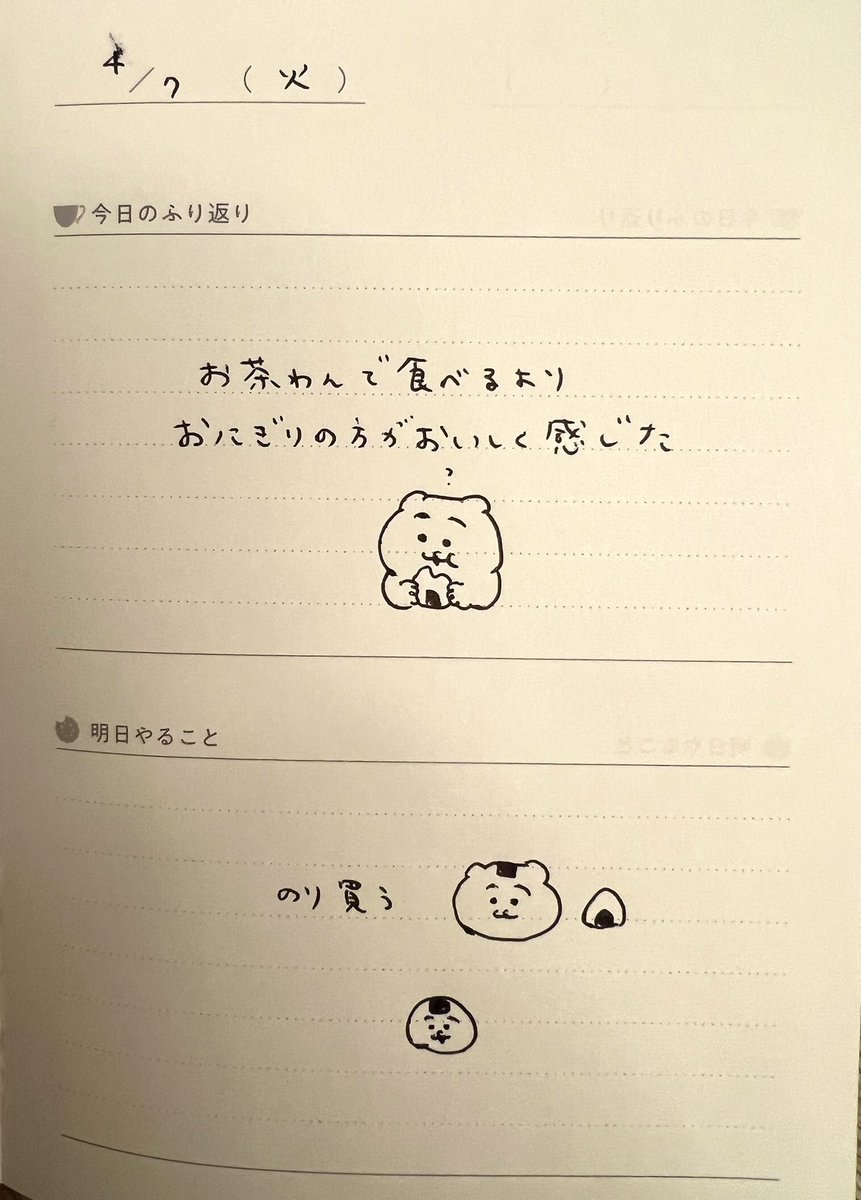 4/7 (火)
今日のふり返り
お茶わんで食べるより
おにぎりの方がおいしく感じた
?
明日やること
のり買う